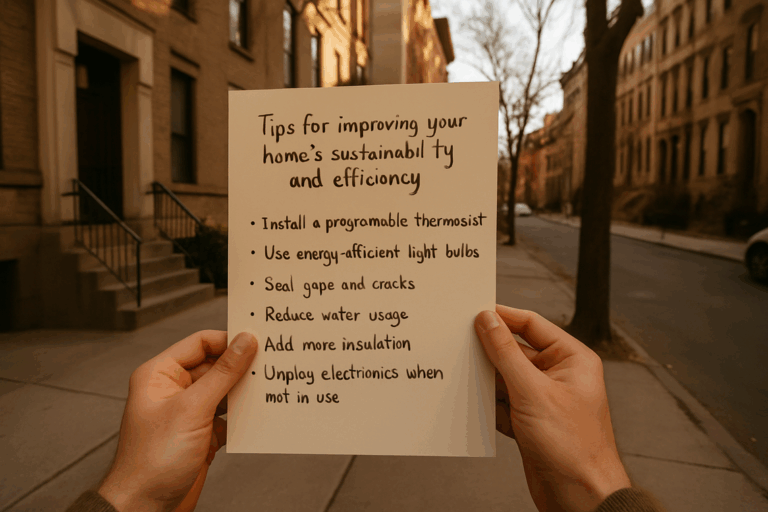 Tips for improving your
home's sustainabil ty
and efficioncy
• Install a programable thermosist
• Use energy-afficient light bulbs
• Seal gape and cracks
• Reduce water usage
• Add more insulation
• Unplay electrionics when
mot in use